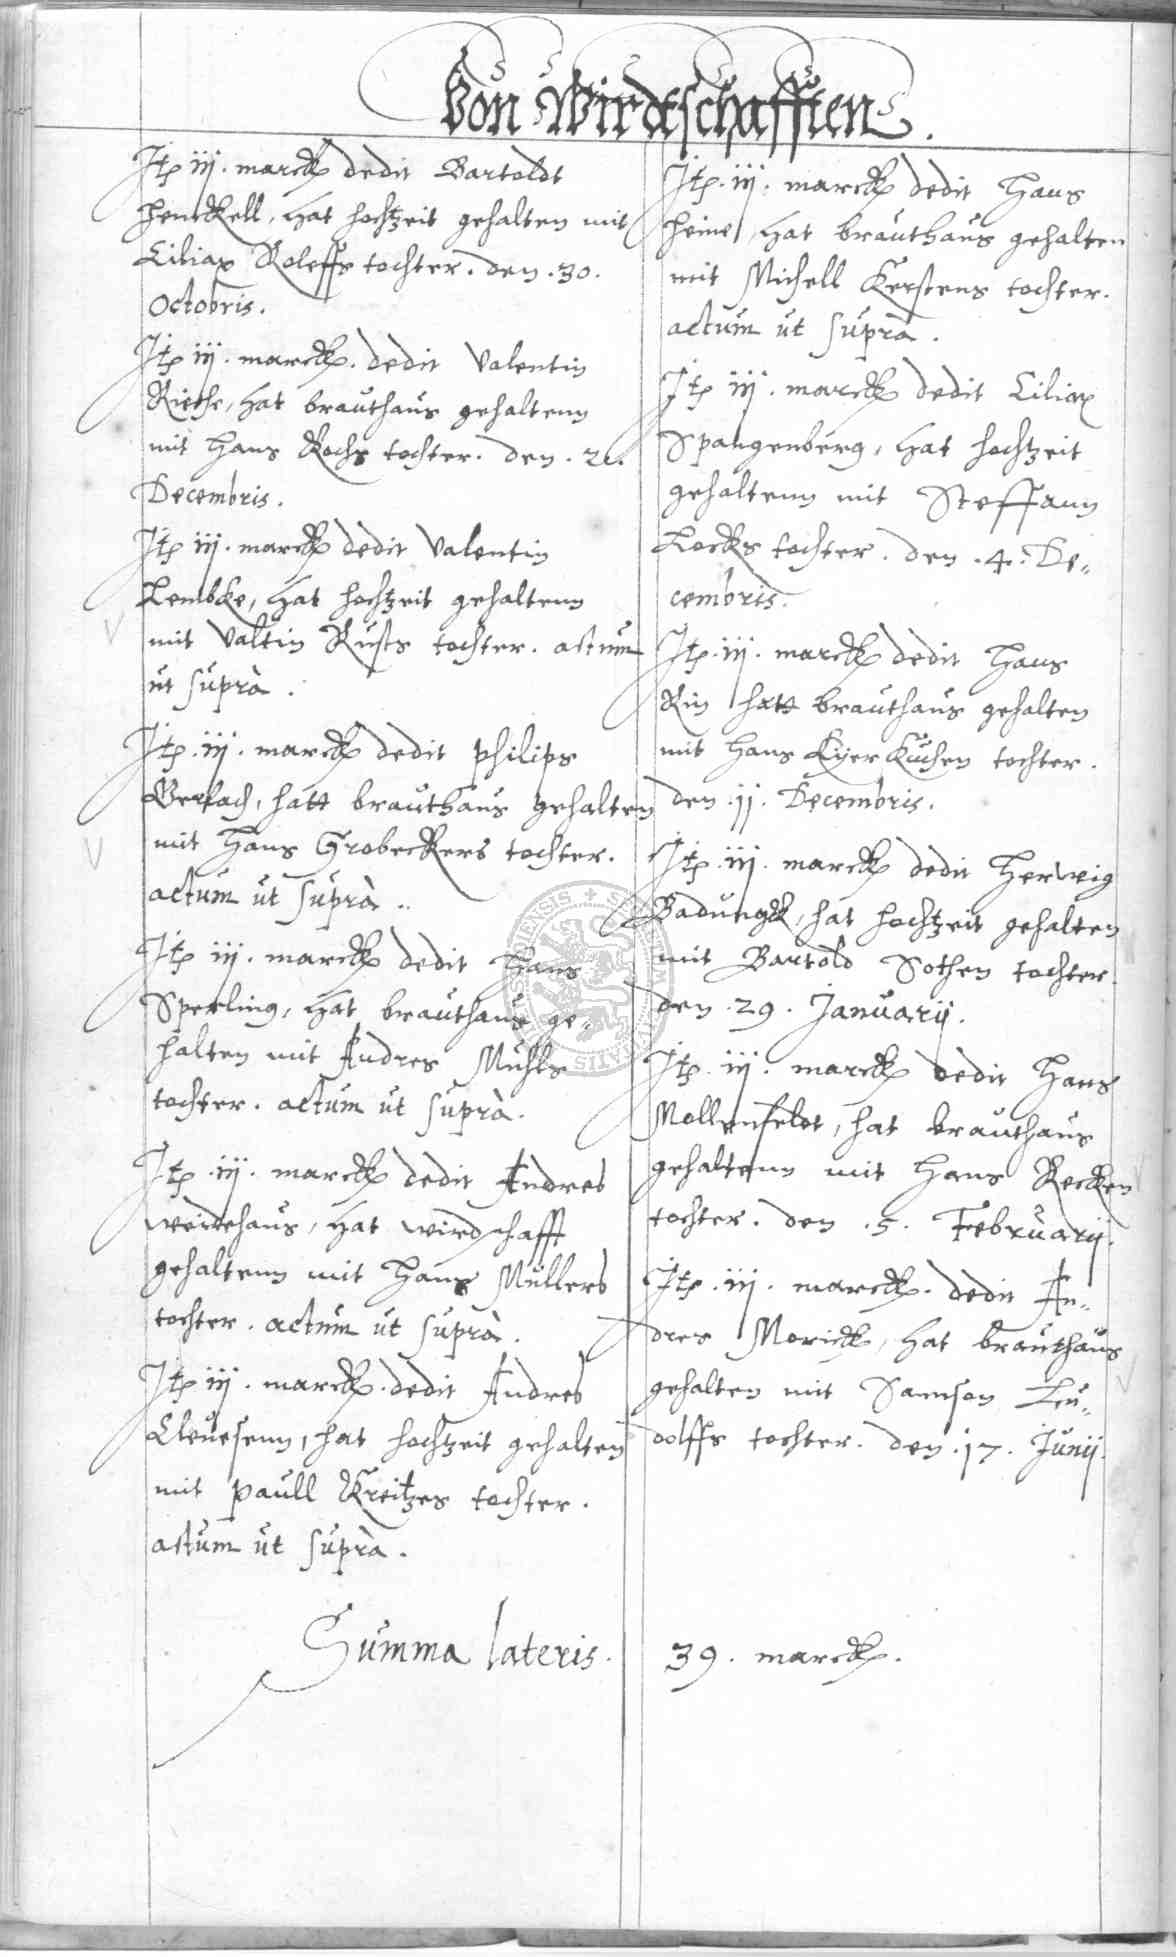 Von Wirdtschafften.
Itp iij. marck dedit Bartoldt
Henckell, hat hochtzeit gehalten mit
Ciliax Roleffs tochter. den .30.
Octobris.
Itp iij. marck. dedit Valentin
Riethe, hat brauthaus gehaltenn
mit Hans Kochs tochter. den .
Decembris.
Itp iij. marck dedit Valentin
Lembke, hat hochtzeit gehaltenn
mit Valtin Rusts tochter. actum
ut supra.
Itp .iij. marck dedit philips
Gerlach, hatt brauthaus gehalten
mit Hans Grobeckers tochter.
actum ut supra ..
Itp iij. marck dedit Hans
Sperling, hat brauthaus ge„
halten mit Andres Muhls
tochter. actum ut supra.
Itp .iij. marck dedit Andres
hat wirdschafft
gehaltenn mit Hans Müllers
tochter. actum ut supra.
Itp iij. marck. dedit Andres
Cleuesenn, hat hochtzeit gehalten
mit paull Kreitzes tochter.
actum ut supra.
Itp. iij. marck dedit Hans
Heine, hat brauthaus gehalten
mit Michell Kerstens tochter.
actum ut supra.
Itp iij. marck dedit Ciliax
Spangenberg, hat hochtzeit
gehaltenn mit Steffann
Kocks tochter. den .4. De„
cembris.
Itp. iij. marck dedit Hans
Rin hatt brauthaus gehalten
mit Hans Eyer Kuchen tochter.
den .11. Decembris.
Itp .iij. marck dedit Herwig
Badungk, hat hochtzeit gehalten
mit Bartold Sothen tochter.
den .29. Januarij.
Itp. iij. marck dedit Hans
Mollenfeldt, hat brauthaus
gehaltenn mit Hans Recken
tochter. den .5. Februarij.
Itp .iij. marck. dedit An„
dres Morick, hat brauthaus
gehalten mit Samson Lu„
dolffs tochter. den .17. Junij.
Summa lateris. 39. marck.